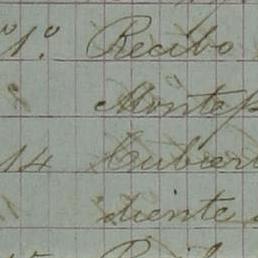 º 1.º Recibo
Montep
14 Cubier
diente